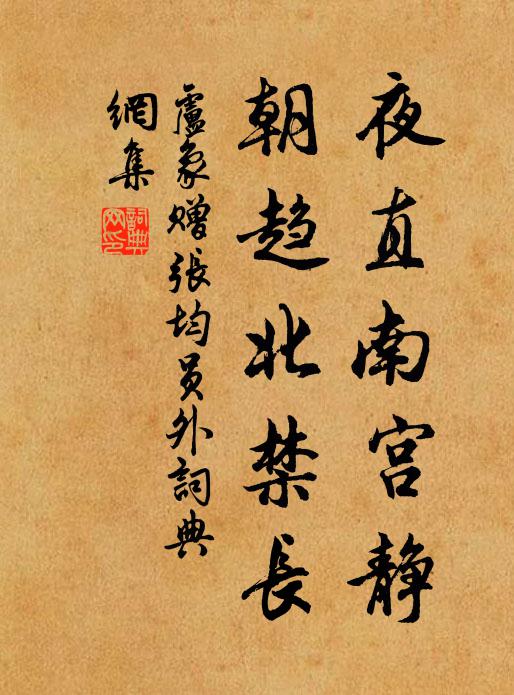 夜直南宫静
朝趋北禁長
盧象贈張均員外詞典
網集
詞典
网印